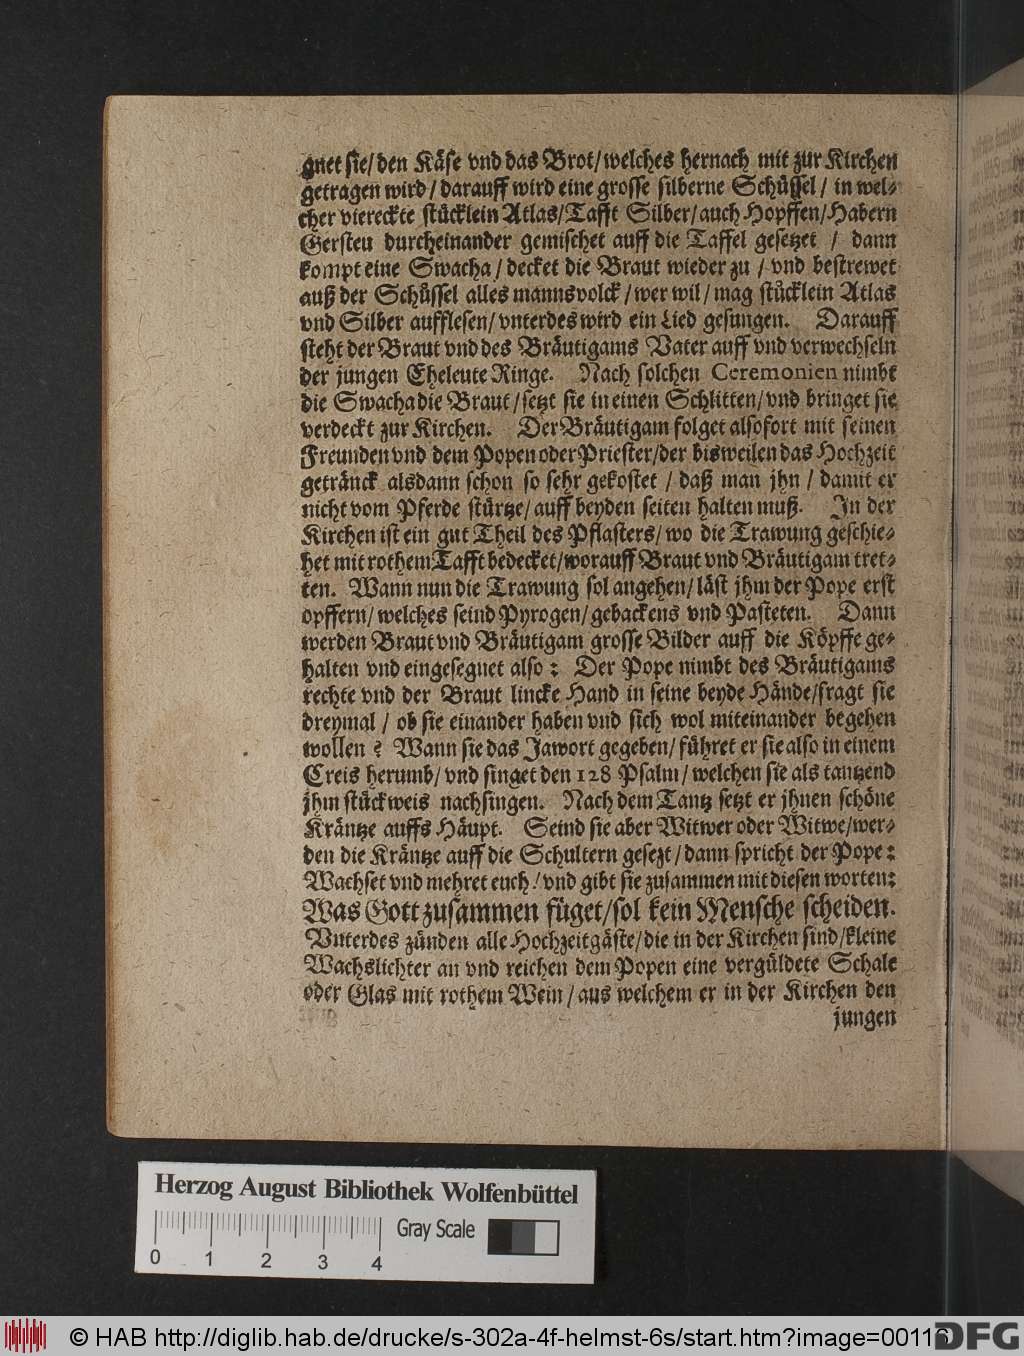 gnet sie/ den Käse vnd das Brot/ welches hernach mit zur Kirchen
getragen wird/ darauff wird eine grosse silberne Schüssel/ in wel-
cher viereckte stücklein Atlas/ Tafft Silber/ auch Hopffen/ Habern
Gersten durcheinander gemischet auff die Taffel gesetzet / dann
kompt eine Swacha/ decket die Braut wieder zu / vnd bestrewet
auß der Schüssel alles mannsvolck/ wer wil/ mag stücklein Atlas
vnd Silber aufflesen/ vnterdes wird ein Lied gesungen. Darauff
steht der Braut vnd des Bräutigams Vater auff vnd verwechseln
der jungen Eheleute Ringe. Nach solchen Ceremonien nimbt
die Swacha die Braut/ setzt sie in einen Schlitten/ vnd bringet sie
verdeckt zur Kirchen. Der Bräutigam folget alsofort mit seinen
Freunden vnd dem Popen oder Priester/ der bisweilen das Hochzeit
getränck alsdann schon so sehr gekostet / daß man jhn / damit er
nicht vom Pferde stürtze/ auff beyden seiten halten muß. In der
Kirchen ist ein gut Theil des Pflasters/ wo die Trawung geschie-
het mit rothem Tafft bedecket/ worauff Braut vnd Bräutigam tret-
ten. Wann nun die Trawung sol angehen/ läst jhm der Pope erst
opffern/ welches seind Pyrogen/ gebackens vnd Pasteten. Dann
werden Braut vnd Bräutigam grosse Bilder auff die Köpffe ge-
halten vnd eingesegnet also: Der Pope nimbt des Bräutigams
rechte vnd der Braut lincke Hand in seine beyde Hände/ fragt sie
dreymal / ob sie einander haben vnd sich wol miteinander begehen
wollen? Wann sie das Jawort gegeben/ führet er sie also in einem
Creis herumb/ vnd singet den 128 Psalm/ welchen sie als tantzend
jhm stückweis nachsingen. Nach dem Tantz setzt er jhnen schöne
Kräntze auffs Häupt. Seind sie aber Witwer oder Witwe/ wer-
den die Kräntze auff die Schultern gesezt/ dann spricht der Pope:
Wachset vnd mehret euch/ vnd gibt sie zusammen mit diesen worten:
Was Gott zusammen füget/ sol kein Mensche scheiden.
Vnterdes zünden alle Hochzeitgäste/ die in der Kirchen sind/ kleine
Wachslichter an vnd reichen dem Popen eine vergüldete Schale
oder Glas mit rothem Wein/ aus welchem er in der Kirchen den
jungen
Herzog August Bibliothek Wolfenbüttel
Gray Scale
0 1 2 3 4
© HAB http://diglib.hab.de/drucke/s-302a-4f-helmst-6s/start.htm?image=00116
DFG